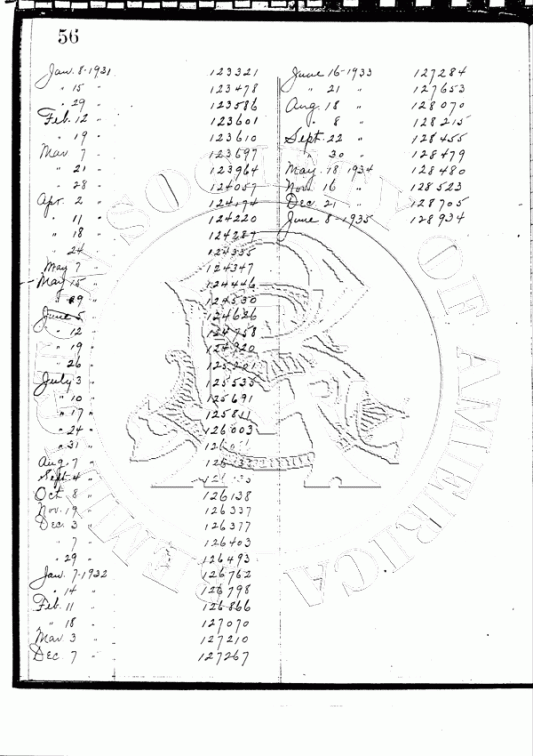 56
Jan. 8-1931 123321
" 15 " 123478
" 29 " 123586
Feb. 12 " 123601
" 19 " 123610
Mar 7 " 123697
" 21 " 123964
" 28 " 124057
Apr. 2 " 124194
" 11 " 124220
" 18 " 124287
" 24 " 124335
May 7 " 124347
May 15 " 124446
" 29 " 124530
June 5 " 124626
" 12 " 124758
" 19 "
" 26 "
July 3 " 125535
" 10 " 125691
" 17 " 125811
" 24 " 126003
" 31 "
Aug. 7 "
Sept. 4 "
Oct 8 " 126138
Nov. 19 " 126337
Dec. 3 " 126377
" 7 " 126403
" 29 " 126493
Jan. 7-1932 126762
" 14 " 126798
Feb. 11 " 126866
" 18 " 127070
Mar 3 " 127210
Dec. 7 " 127267
June 16-1933 127284
" 21 " 127653
Aug. 18 " 128070
" 8 " 128215
Sept. 22 " 128455
" 30 " 128479
May 18 1934 128480
Nov. 16 " 128523
Dec. 21 " 128705
June 8-1935 128934
SOCIETY OF AMERICA